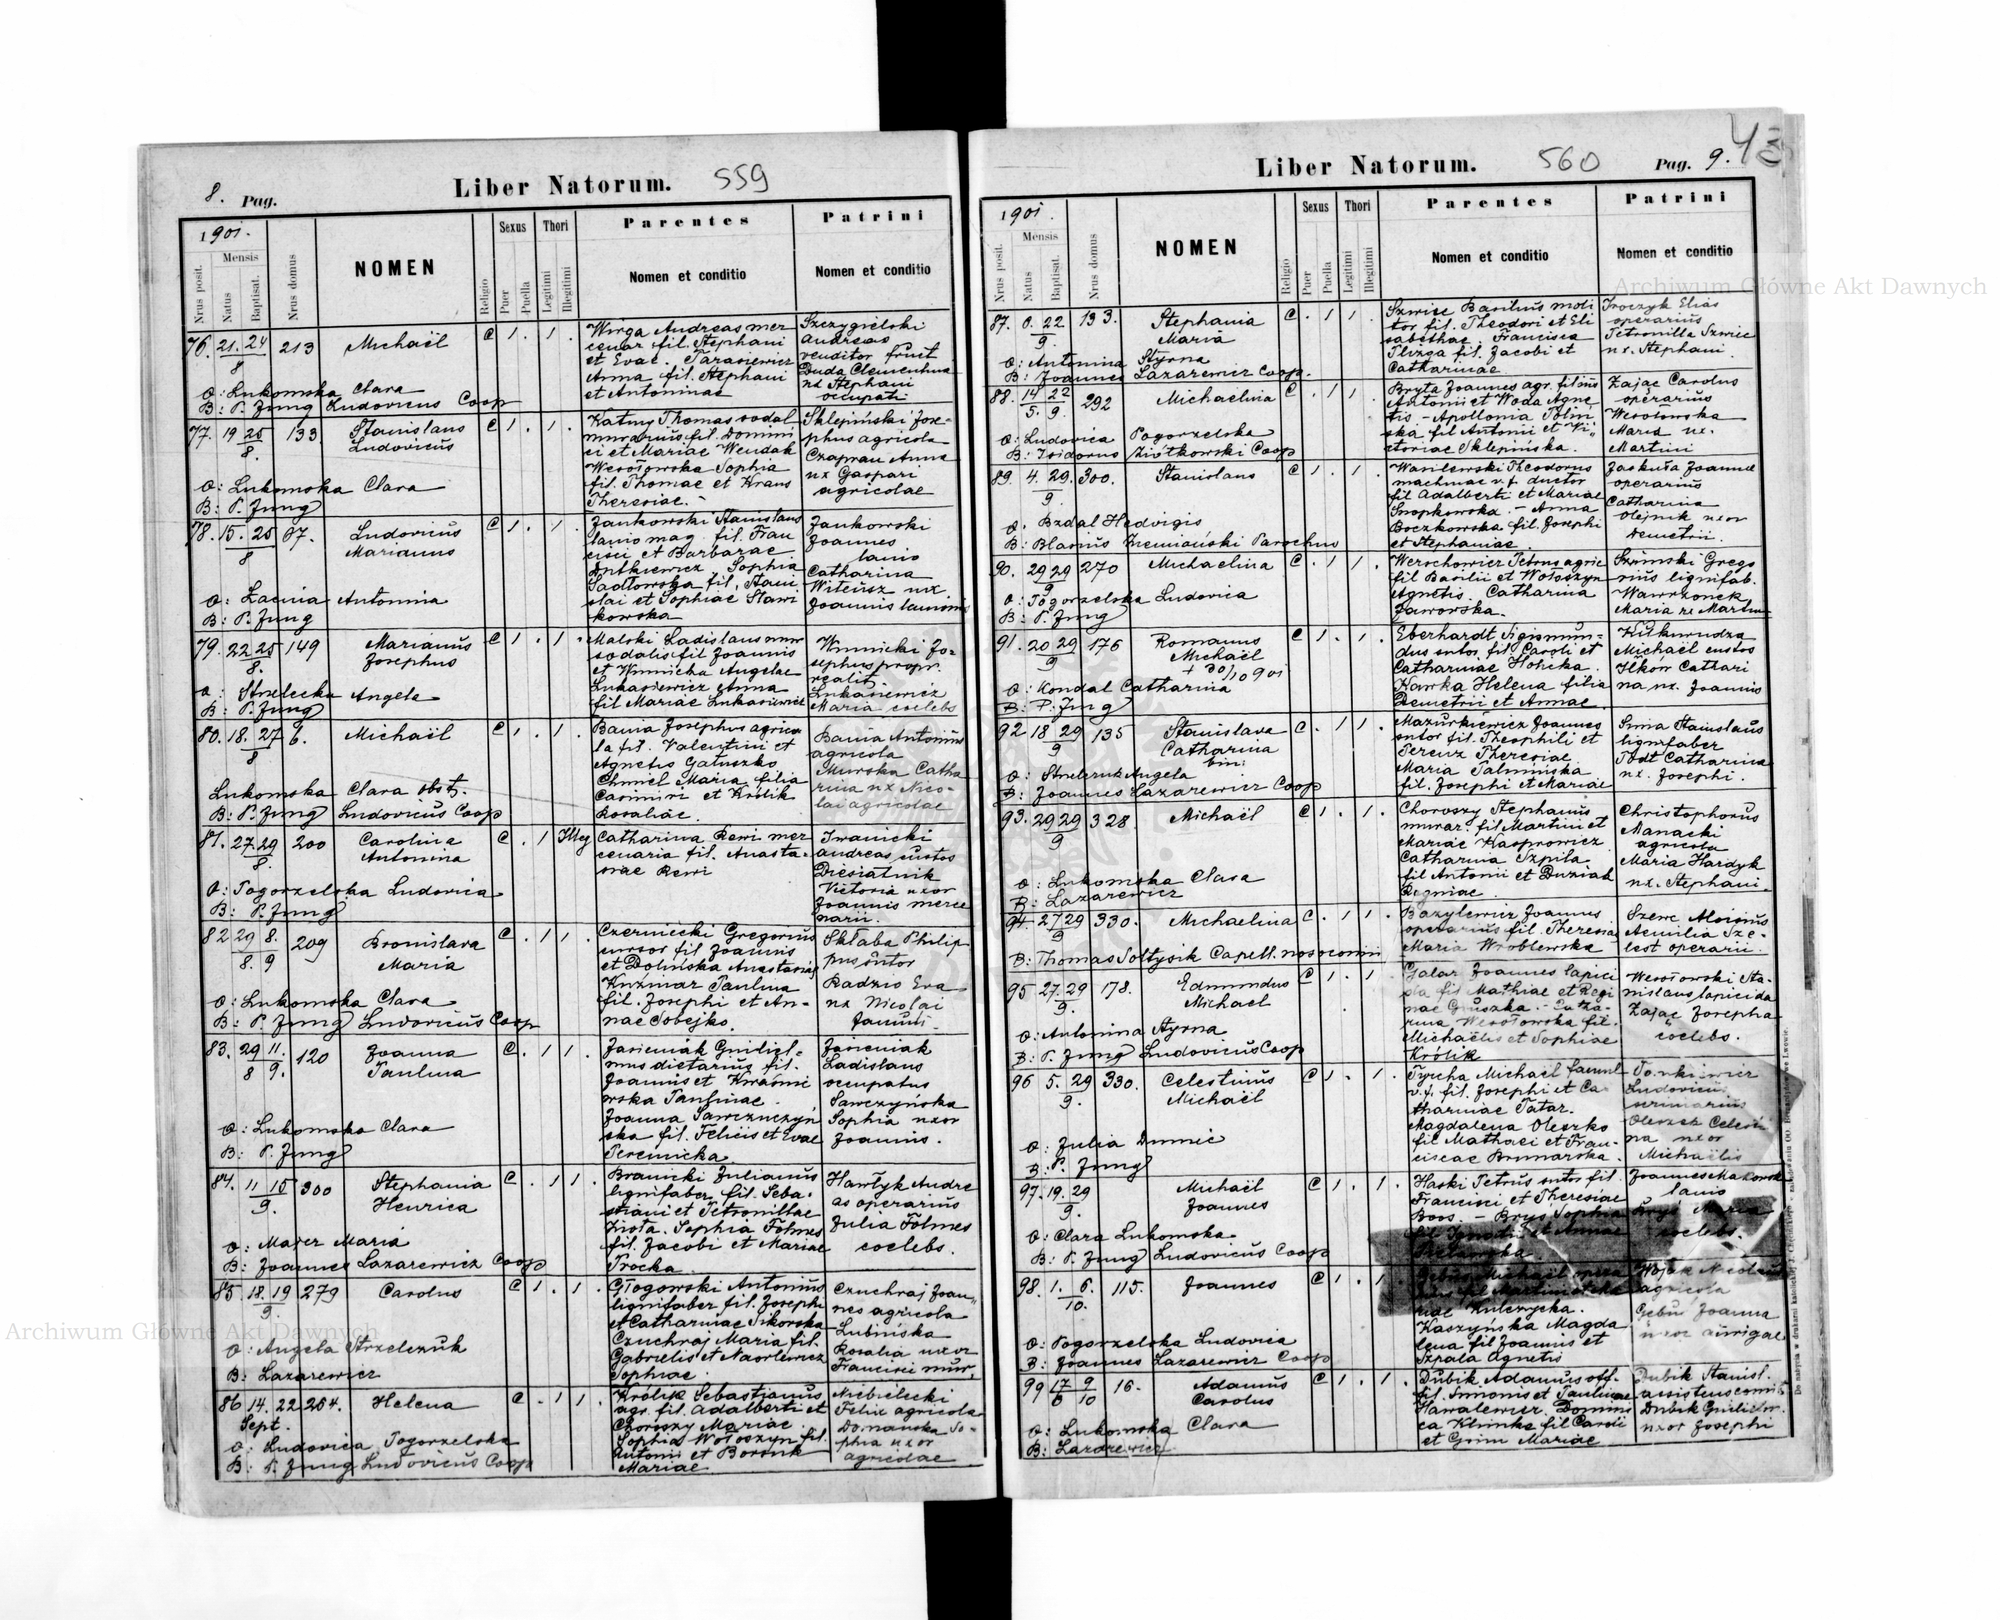 8. Pag.
Liber Natorum. 559
1901.
Mensis
Nrus posit.
Natus
Baptisat.
Nrus domus
NOMEN
Religio
Sexus
Puer
Puella
Thori
Legitimi
Illegitimi
Parentes
Nomen et conditio
Patrini
Nomen et conditio
76. 21. 24 213 Michaël C 1 . 1 .
8
Wirga Andreas mer
cenar fil. Stephani
et Evae. Tarasiewicz
Anna fil. Stephani
et Antoninae
Szczygielski
Andreas
venditor fruct
Duda Clementina
ux Stephani
occupati
O: Lukomska Clara
B: P. Jung Ludovicus Coop
77. 19 25 133. Stanislaus C 1 . 1 .
8. Ludovicus
Katny Thomas sodal
murarius fil. Domini
ci et Mariae Wendak
Wesołowska Sophia
fil. Thomae et Kraus
Theresiae.
Sklepiński Jose-
phus agricola
Czapran Anna
ux Gaspari
agricolae
O: Lukomska Clara
B: P. Jung
78. 15. 25 67. Ludovicus C 1 . 1 .
8 Marianus
Jankowski Stanislaus
lanio mag. fil. Fran
cisci et Barbarae
Dutkiewicz. Sophia
Sadłowska fil. Stani
slai et Sophiae Sławi
kowska
Jankowski
Joannes
lanio
Catharina
Witeusz ux.
Joannis lanionis
O: Lacina Antonina
B: P. Jung
79. 22 25 149 Marianus C 1 . 1 .
8. Josephus
Malski Ladislaus mur
sodalis fil Joannis
et Winnicka Angelae
Lukasiewicz Anna
fil Mariae Lukasiewicz
Winnicki Jo-
sephus propr.
realit
Lukasiewicz
Maria coelebs
O: Strelecka Angela
B: P. Jung
80. 18. 27 6. Michaël C 1 . 1 .
8
Bania Josephus agrico
la fil. Valentini et
Agnetis Gałuszko
Chmiel Maria filia
Casimiri et Królik
Rosaliae.
Bania Antonius
agricola
Murska Catha
rina ux Nico-
lai agricolae
Lukomska Clara obst.
B: P. Jung Ludovicus Coop
81. 27. 29 200 Carolina C . 1 Illeg
8. Antonina
Catharina Rewi mer
cenaria fil. Anasta-
siae Rewi
Iwanicki
Andreas custos
Diesiatnik
Victoria uxor
Joannis merce
narii.
O: Pogorzelska Ludovica
B: P. Jung
82 29 8. 209 Bronislava C . 1 1 .
8. 9 Maria
Czerniecki Gregorius
cursor fil Joannis
et Dolińska Anastasiae
Kuzmar Paulina
fil. Josephi et An-
nae Sobejko.
Skłaba Philip
pus sutor
Radzio Eva
ux Nicolai
famuli.
O: Lukomska Clara
B: P. Jung Ludovicus Coop
83. 29 11. 120 Joanna C . 1 1 .
8 9. Paulina
Jasieniak Guiliel-
mus dietarius fil.
Joannis et Kwaśni
wska Paulinae.
Joanna Sawczuczyń
ska fil. Felicis et Evae
Percinicka
Jasieniak
Ladislaus
occupatus
Sawczyńska
Sophia uxor
Joannis.
O: Lukomska Clara
B: P. Jung
84. 11 15 300 Stephania C . 1 1 .
9. Henrica
Branicki Julianus
lignifaber fil. Seba-
stiani et Petronillae
Złota. Sophia Folmes
fil. Jacobi et Mariae
Procka.
Hawłyk Andre
as operarius
Julia Folmes
coelebs.
O: Majer Maria
B: Joannes Lazarewicz Coop
85. 18. 19 279 Carolus C 1 . 1 .
9
Głogowski Antonius
lignifaber fil. Josephi
et Catharinae Sikorska
Czuchraj Maria fil.
Gabrielis et Nawrlewicz
Sophiae.
Czuchraj Joan-
nes agricola
Lubińska
Rosalia uxor
Francisci mur.
O: Angela Strzelczuk
B: Lazarewicz
86 14. 22 264. Helena C . 1 1 .
Sept.
Królik Sebastianus
agr. fil. Adalberti et
Choroszy Mariae.
Sophia Wołoszyn fil.
Antonii et Boronk
Mariae
Niebielecki
Felix agricola
Domanska So-
phia uxor
agricolae
O: Ludovica Pogorzelska
B: P. Jung Ludovicus Coop
Liber Natorum. 560 Pag. 9. 43
1901.
Mensis
Nrus posit.
Natus
Baptisat.
Nrus domus
NOMEN
Religio
Sexus
Puer
Puella
Thori
Legitimi
Illegitimi
Parentes
Nomen et conditio
Patrini
Nomen et conditio
87. 6. 22 133. Stephania C . 1 1 .
9. Maria
Szwiec Basilius moli
tor fil. Theodori et Eli
sabethae. Francisca
Pluzga fil. Jacobi et
Catharinae
Troczyk Elias
operarius
Petronilla Szwiec
ux. Stephani.
O: Antonina Styrna
B: Joannes Lazarewicz Coop.
88. 14 22 292 Michaelina C . 1 1 .
5. 9.
Bryta Joannes agr. filius
Antonii et Woda Agne
tis - Apollonia Polin
ska fil Antonii et Vi
ctoriae Sklepińska.
Zając Carolus
operarius
Wesołowska
Maria ux.
Martini
O: Ludovica Pogorzelska
B: Isidorus Ziółkowski Coop
89. 4. 29. 300. Stanislaus C 1 . 1 .
9
Wasilewski Theodorus
machinae v.f. ductor
fil Adalberti et Mariae
Snopkowska. - Anna
Boczkowska fil. Josephi
et Stephaniae
Zaskuła Joannes
operarius
Catharina
Olejnik uxor
Demetrii.
O: Bzdal Hedvigis
B: Blasius Parochus
90. 29 29 270 Michaelina C . 1 1 .
9
Werschowicz Petrus agric
fil Basilii et Wołoszyn
Agnetis. Catharina
Jaworska.
Szimski Grego
rius lignifab.
Wawrzonek
Maria ux Martini
O: Pogorzelska Ludovica
B: P. Jung
91. 20 29 176 Romanus C 1 . 1 .
9 Michaël
+ 30/10 901
Eberhardt Sigismun-
dus sutor. fil. Caroli et
Catharinae Holicka.
Hawka Helena filia
Demetrii et Annae.
Kukurudza
Michaël custos
Ilków Cathari
na ux. Joannis
O: Kondal Catharina
B: P. Jung
92 18 29 135 Stanislava C . 1 1 .
9 Catharina
bin:
Mazurkiewicz Joannes
sutor fil. Theophili et
Perenz Theresiae.
Maria Talmińska
fil. Josephi et Mariae
Suma Stanislaus
lignifaber
Todt Catharina
ux. Josephi.
O: Strelczuk Angela
B: Joannes Lazarewicz Coop
93. 29 29 328. Michaël C 1 . 1 .
9
Choroszy Stephanus
murar. fil Martini et
Mariae Kasprowicz
Catharina Szpila
fil Antonii et Duziak
Reginae.
Christophorus
Manacki
agricola
Maria Hardyk
ux. Stephani.
O: Lukomska Clara
B: Lazarewicz
94. 27 29 330. Michaelina C . 1 1 .
9
Bazylewicz Joannes
operarius fil. Theresiae
Maria Wroblewska
Szewc Aloisius
Aemilia Sze-
lest operarii.
B: Thomas Sołtysik Capell. nosocomii
95 27. 29 178. Edmundus C 1 . 1 .
9. Michael
Galar Joannes lapici
da fil Mathiae et Regi
nae Gruszka. Catha-
rina Wesołowska fil.
Michaelis et Sophiae
Królik
Wesołowski Sta-
nislaus lapicida
Zając Josepha
coelebs.
O: Antonina Styrna
B: P. Jung Ludovicus Coop
96 5. 29 330. Celestinus C 1 . 1 .
9. Michaël
Tyrcha Michaël famul
v.f. fil. Josephi et Ca-
tharinae Tatar.
Magdalena Oleszko
fil Mathaei et Fran-
ciscae Brunarska.
Ludovicus
Oleszek Celesti
na uxor
Michaëlis
O: Julia Dumic
B: P. Jung
97. 19. 29 Michaël C 1 . 1 .
9. Joannes
Haski Petrus sutor fil.
Francisci et Theresiae
Boos. - Bryś Sophia
fil Ignatii et Annae
Joannes
lanio
Bryś Maria
coelebs.
O: Clara Lukomska
B: P. Jung Ludovicus Coop
98. 1. 6. 115. Joannes C 1 . 1 .
10.
Gebus Michaël opera
rius fil Martini et Ma
riae Kulczycka.
Kaszyńska Magda
lena fil Joannis et
Szpala Agnetis
Wojtak Nicolaus
agricola
Gebus Joanna
uxor aurigae
O: Pogorzelska Ludovica
B: Joannes Lazarewicz Coop
99 17 9 16. Adamus C 1 . 1 .
6 10 Carolus
Dubik Adamus off.
fil. Simonis et Paulinae
Hawalewicz. Domini
ca Klimka fil Caroli
et Grim Mariae
Dubik Stanisl.
assistens comis
Dubik Guilielm.
uxor Josephi
O: Lukomska Clara
B: Lazarewicz
Archiwum Główne Akt Dawnych
Archiwum Główne Akt Dawnych